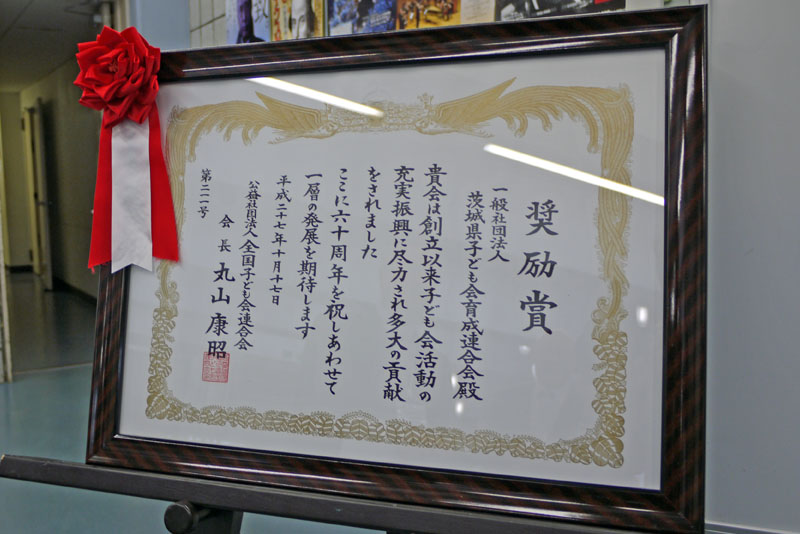 奨励賞
一般社団法人
茨城県子ども会育成連合会殿
貴会は創立以来子ども会活動の
充実振興に尽力され多大の貢献
をされました
ここに六十周年を祝しあわせて
一層の発展を期待します
平成二十七年十月十七日
公益社団法人全国子ども会連合会
会長 丸山康昭
第二一一号